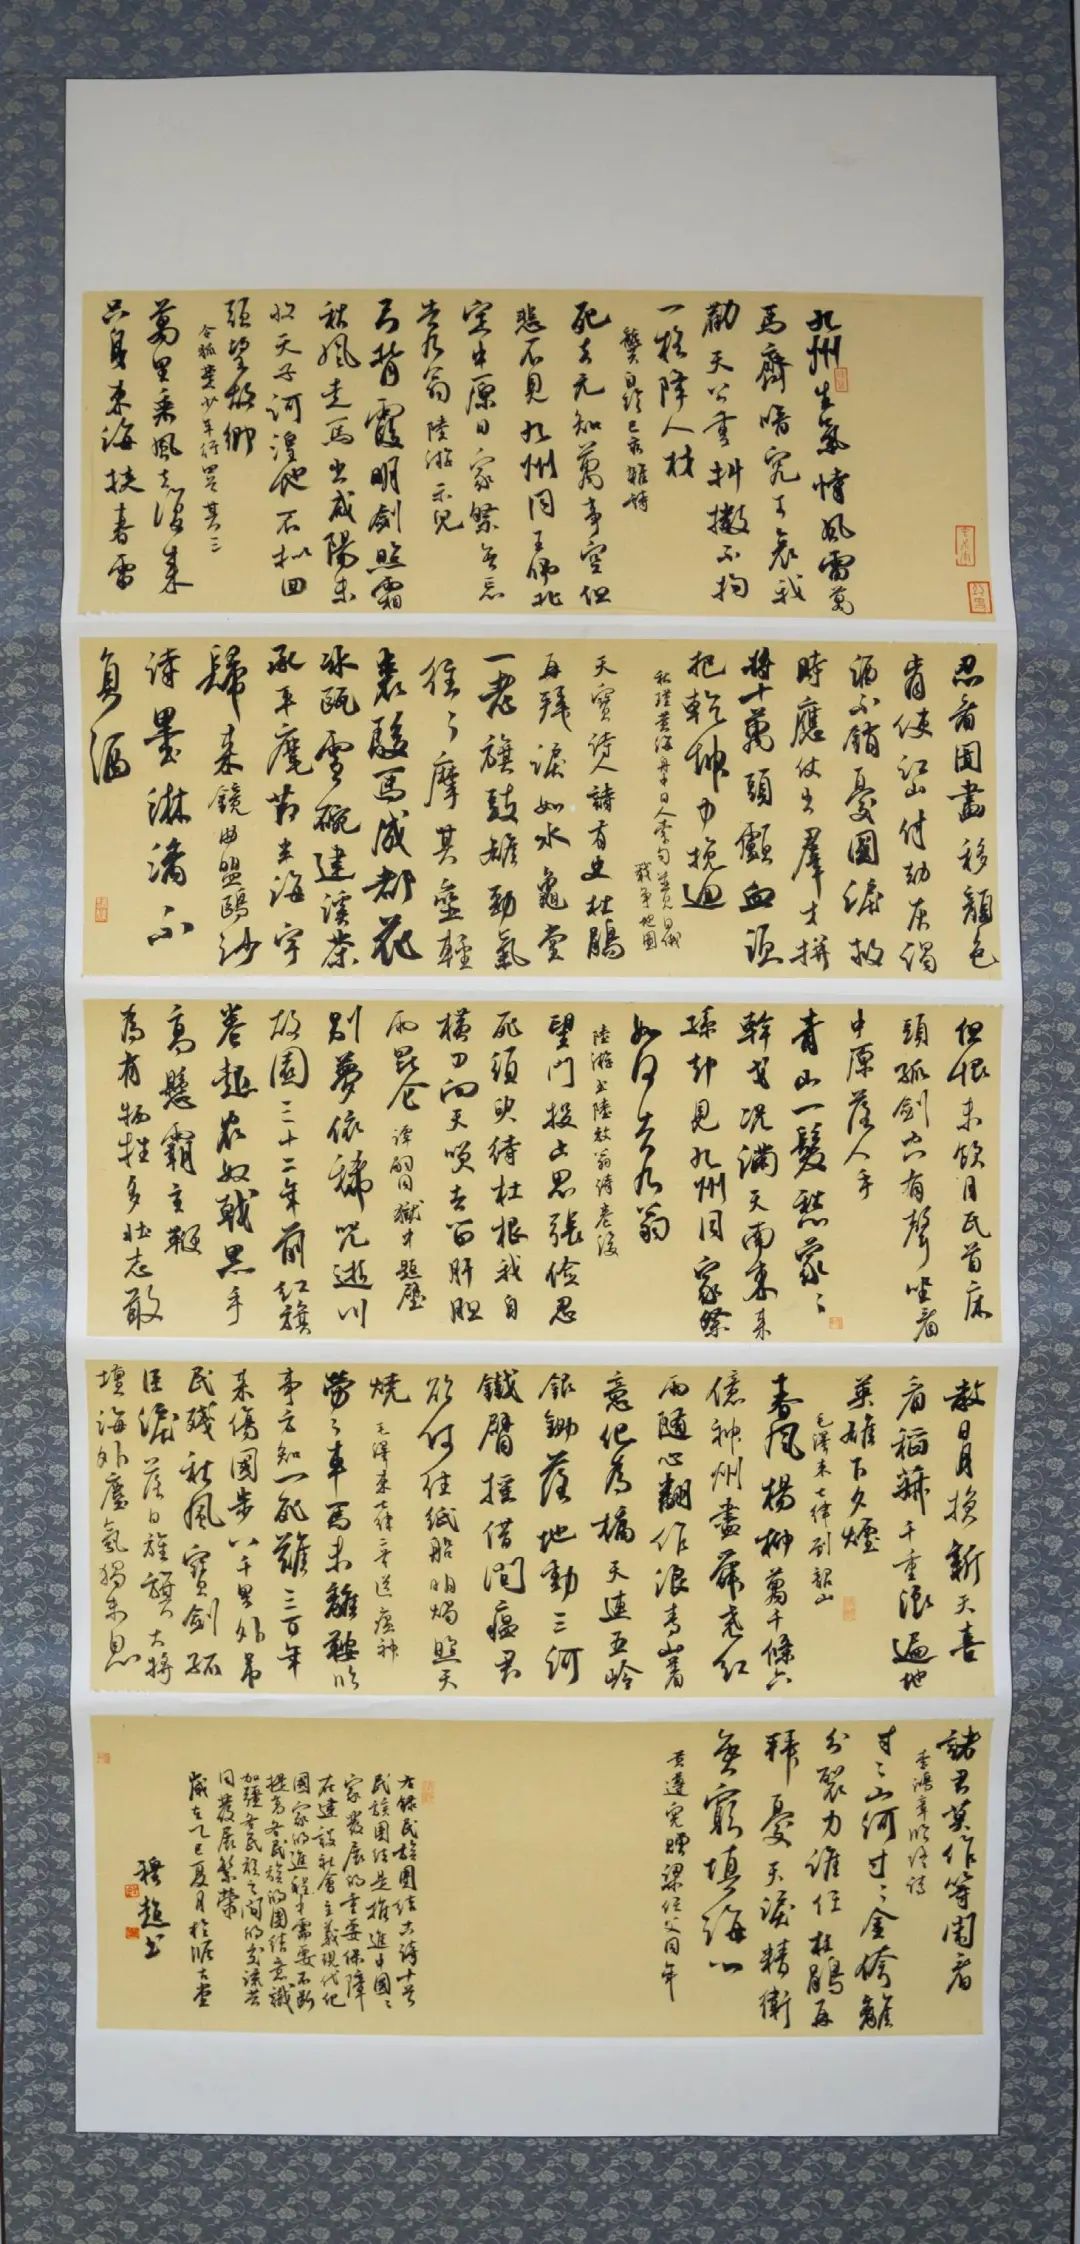 九州生氣恃風雷萬
馬齊喑究可哀我
勸天公重抖擻不拘
一格降人材
龔自珍己亥雜詩
死去元知萬事空但
悲不見九州同王師北
定中原日家祭無忘
告乃翁 陸游示兒
弓背霞明劍照霜
秋風走馬出咸陽未
收天子河湟地不擬回
頭望故鄉
令狐楚少年行四首其三
萬里乘風去復來
只身東海挾春雷
忍看圖畫移顏色
肯使江山付劫灰濁
酒不銷憂國淚救
時應仗出羣才拼
將十萬頭顱血須
把乾坤力挽迴
秋瑾黃海舟中日人索句并見日俄
戰爭地圖
天寶詩人詩有史杜鵑
再拜淚如水龜堂
一老旗鼓雄勁氣
往々摩其壘輕
裘駿馬成都花
冰甌雪碗建溪茶
承平麾節半海宇
歸來鏡曲盟鷗沙
詩墨淋漓不
負酒
但恨未飲月氏首床
頭孤劍空有聲坐看
中原落人手
青山一髮愁蒙々
幹戈況滿天南東來
孫却見九州同家祭
如何告乃翁
陸游書陸放翁詩卷後
望門投止思張儉忍
死須臾待杜根我自
橫刀向天笑去留肝胆
兩昆侖 譚嗣同獄中題壁
別夢依稀咒逝川
故園三十二年前紅旗
卷起農奴戟黑手
高懸霸主鞭
為有牺牲多壯志敢
教日月換新天喜
看稻菽千重浪遍地
英雄下夕煙
毛澤東七律到韶山
春風楊柳萬千條六
億神州盡舜堯紅
雨隨心翻作浪青山著
意化為橋天連五岭
銀鋤落地動三河
鐵臂搖借問瘟君
欲何往紙船明燭照天
燒 毛澤東七律二首送瘟神
勞々車馬未離鞍臨
事方知一死難三百年
來傷國步八千里外弔
民殘秋風寶劍孤
臣淚落日旌旗大將
壇海外塵氛猶未息
諸君莫作等閑看
李鴻章臨終詩
寸々山河寸々金侉離
分裂力誰任杜鵑再
拜憂天淚精衛
無窮填海心
黃遵憲贈梁任父同年
右錄民族團結古詩十首
民族團結是推進中國々
家發展的重要保障
在建設社會主義現代化
國家的進程中需要不斷
提高各民族的團結意識
加強各民族之間的交流共
同發展繁榮
歲在乙巳夏月於古堂
穆超書